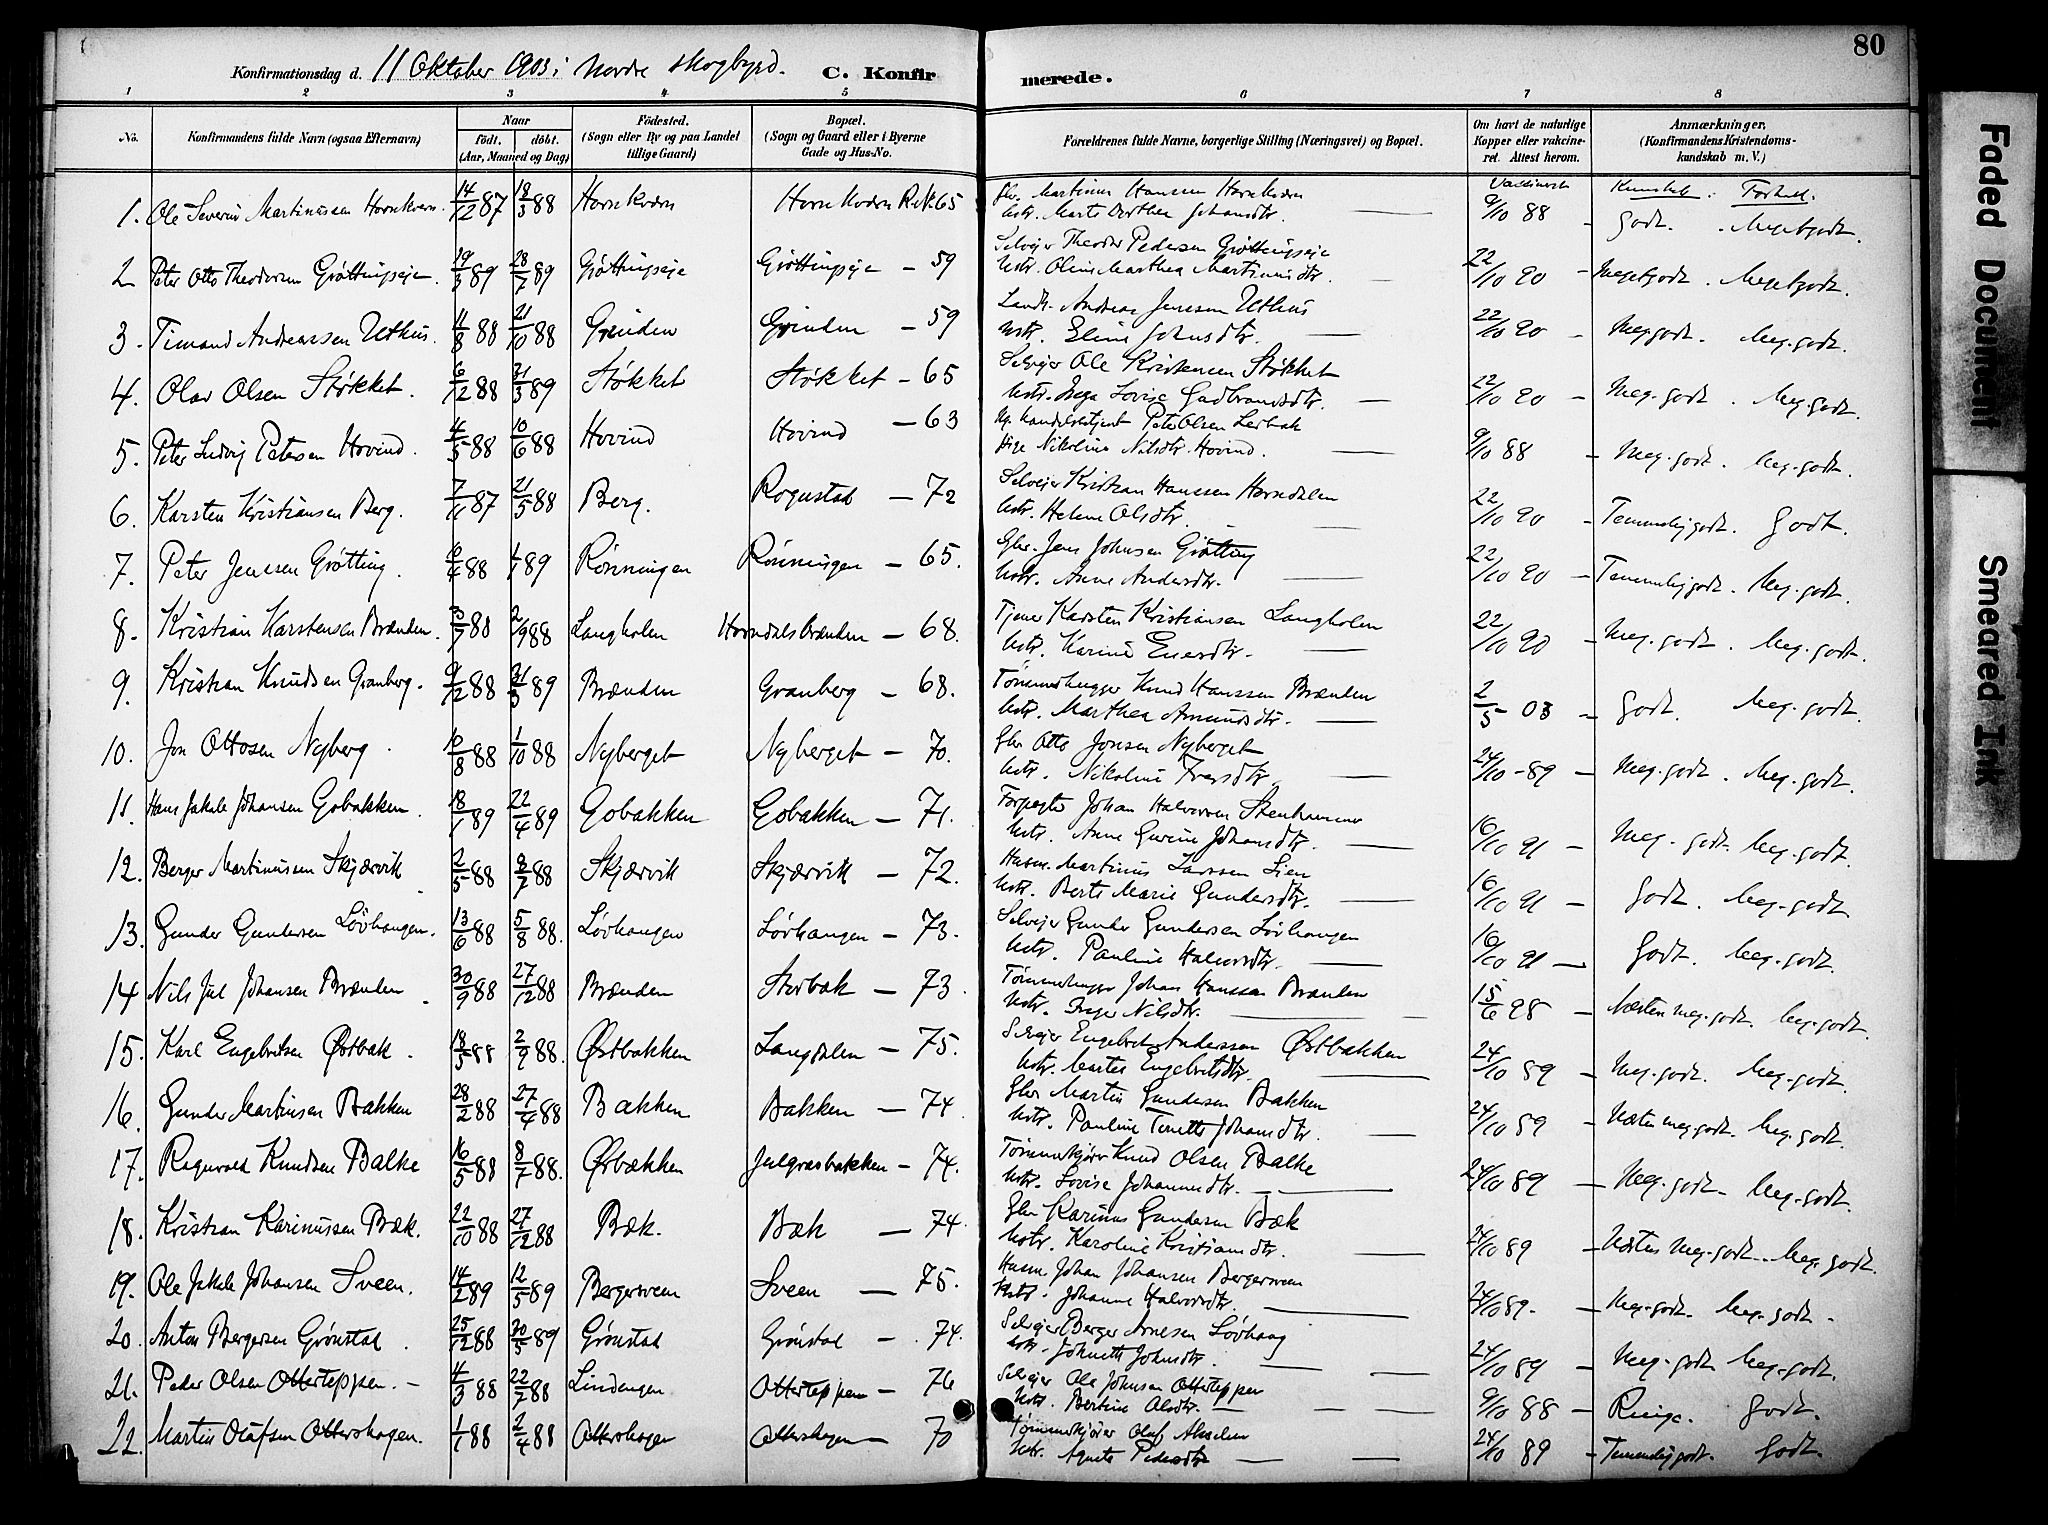 80
Konfirmationsdag d. 11 Oktober 1903 i Nordre Skogbygd. C. Konfirmerede.
1 2 3 4 5 6 7 8
No. Konfirmandens fulde Navn (ogsaa Efternavn) Naar født, døbt. (Aar, Maaned og Dag) Fødested. (Sogn eller By og paa Landet tillige Gaard) Bopæl. (Sogn og Gaard eller i Byerne Gade og Hus-No. Forældrenes fulde Navne, borgerlige Stilling (Næringsvei) og Bopæl. Om havt de naturlige Kopper eller vakcineret. Attest herom. Anmærkninger. (Konfirmandens Kristendomskundskab m. V.)
1. Ole Severin Martinussen Hornkværn 14/12 87 18/3 88 Hornkværn Hornkværn R.N. 65 Martinus Hansen Hornkværn
Marte Dorthea Johansdtr. 9/10 88 - Godt. Megetgodt.
2 Peter Otto Theodorsen Grøttingseje 19/3 89 28/7 89 Grøttingseje Grøttingseje - 59 Selvejer Theodor Pedersen Grøttingseje
Hstr. Oline Marthea Martinusdtr. 22/10 90 - Megetgodt. Megetgodt.
3. Timand Andreassen Uthus. 11/8 88 21/10 88 Grinden Grinden - 59 Andreas Jensen Uthus
Hstr. Eline Johnsdtr. 22/10 90 - Meg.godt. Meg.godt.
4. Olav Olsen Støkket. 6/12 88 31/3 89 Støkket Støkket - 65 Selvejer Ole Kristensen Støkket
Hstr. Inga Lovise Gudbrandsdtr. 22/10 90 - Meg.godt. Meg.godt.
5. Peter Ludvig Petersen Hovind. 4/5 88 10/6 88 Hovind Hovind - 63 Peter Olsen Lerbak
Pige Nikoline Nilsdtr. Hovind. 9/10 88 - Meg.godt. Meg.godt.
6. Karsten Kristiansen Berg. 7/11 87 21/5 88 Berg. Rogustad - 72 Selvejer Kristian Hanssen Horndalen
Hstr. Helene Olsdtr. 22/10 90 - Temmeligodt. Godt.
7. Peter Jenssen Grøtting. 6/4 88 1/1 89 Rønningen Rønningen - 65. Gbr. Jens Johnsen Grøtting
Hstr. Anne Andersdtr. 22/10 90 - Temmeligodt. Meg.godt.
8. Kristian Karstensen Brænden. 3/7 88 2/9 88 Langholen Horndalsbrænden - 68. Tjener Karsten Kristiansen Langholen
Hstr. Karine 22/10 90 - Meg.godt. Meg.godt.
9. Kristian Knudsen Granberg. 9/12 88 31/3 89 Brænden Granberg - 68. Tømmerhugger Knud Hanssen Brænden
Hstr. Marthea Amundsdtr. 2/5 03 - Godt. Meg.godt.
10. Jon Ottosen Nyberg 10/8 88 1/10 88 Nyberget Nyberget - 70. Gbr Otto Jonsen Nyberget
Hstr. Nikoline Iversdtr. 24/10 - 89 - Meg.godt. Meg.godt.
11. Hans Jakob Johansen Gobakken 18/1 89 22/4 89 Gobakken Gobakken - 71. Johan Halvorsen
Hstr. Anne Gurine Johansdtr. 16/10 91 - Meg.godt. Meg.godt.
12. Berger Martinussen Skjærvik 2/5 88 8/7 88 Skjærvik Skjærvik - 72. Husm. Martinus Larssen Lien
Hstr. Berte Marie Gundersdtr. 16/10 91 - Godt. Meg.godt.
13. Gunder Gundersen Løvhaugen. 13/6 88 5/8 88. Løvhaugen Løvhaugen - 73. Selvejer Gunder Gundersen Løvhaugen
Hstr. Pauline Halvorsdtr. 16/10 91 - Godt. Meg.godt.
14 Nils Jul Johansen Brænden 30/9 88 27/12 88 Brænden Storbak - 73. Tømmerhugger Johan Hanssen Brænden
Hstr. Inger Nilsdtr. 15/6 98 - Næsten meg.godt. Meg.godt.
15. Karl Engebretsen Østbak. 18/5 88 2/9 88. Østbakken Langdalen - 75. Selvejer Engebret Anderssen Østbakken
Hstr. Marte Engebretsdtr. 24/10 89 - Meg.godt. Meg.godt.
16. Gunder Martinsen Bakken 28/2 88 27/4 88 Bakken Bakken - 74. Gbr Martin Gundersen Bakken
Hstr. Pauline Tonette Johansdtr. 24/10 89 - Næsten meg.godt. Meg.godt.
17. Ragnvald Knudsen Balke 16/5 88 8/7 88. Østbækken Julgræsbakken - 74. Tømmerkjører Knud Olsen Balke
Hstr. Lovise Johannesdtr. 24/10 89 - Meg.godt. Meg.godt.
18. Kristian Karinussen Bæk. 22/10 88 27/12 88 Bæk. Bæk - 74. Gbr Karinus Gundersen Bæk
Hstr. Karoline Kristiansdtr. 24/10 89 - Næsten meg.godt. Meg.godt.
19. Ole Jakob Johansen Sveen. 14/2 89 12/5 89 Bergersveen Sveen - 75. Husm. Johan Johansen Bergersveen
Hstr. Johanne Halvorsdtr. 24/10 89. - Meg.godt. Meg.godt.
20. Anton Bergersen Grønstad 25/12 88 30/5 89 Grønstad Grønstad - 74. Selvejer Berger Arnesen Løvhaug
Hstr. Johnette Johnsdtr. 24/10 89 - Meg.godt. Meg.godt.
21. Peder Olsen Otterteppen. 4/3 88 22/7 88 Lindengen Otterteppen - 76 Selvejer Ole Johnsen Otterteppen
Hstr. Bertine Olsdtr. 9/10 88 - Ringe. Godt.
22. Martin Olafsen Otterskogen. 1/1 88 2/4 88 Otterskogen Otterskogen - 70 Tømmerkjører Olaf
Hstr. Agnete Pedersdtr 24/10 89 - Temmeligodt. Godt.
Faded Document
Smeared Ink